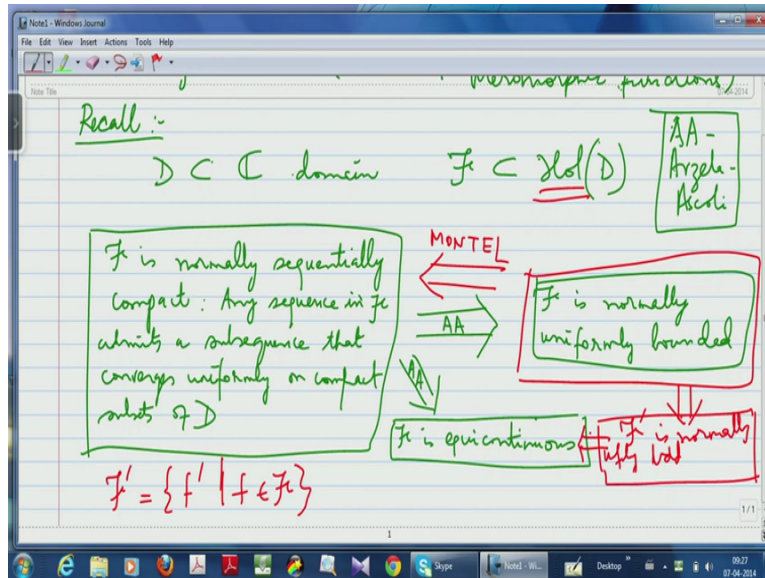 Note1 - Windows Journal
File Edit View Insert Actions Tools Help
Meromorphic functions)
Note Title
07-04-2014
Recall :-
D ⊂ ℂ domain ℱ ⊂ Hol(D)
AA -
Arzela-
Ascoli
ℱ is normally sequentially
compact : Any sequence in ℱ
admits a subsequence that
converges uniformly on compact
subsets of D
MONTEL
AA
AA
ℱ is normally
uniformly bounded
ℱ is equicontinuous
ℱ' is normally
ufly bdd
ℱ' = {f' | f ∈ ℱ}
1/1
1
Skype
Note1 - Wi...
Desktop
09:27
07-04-2014